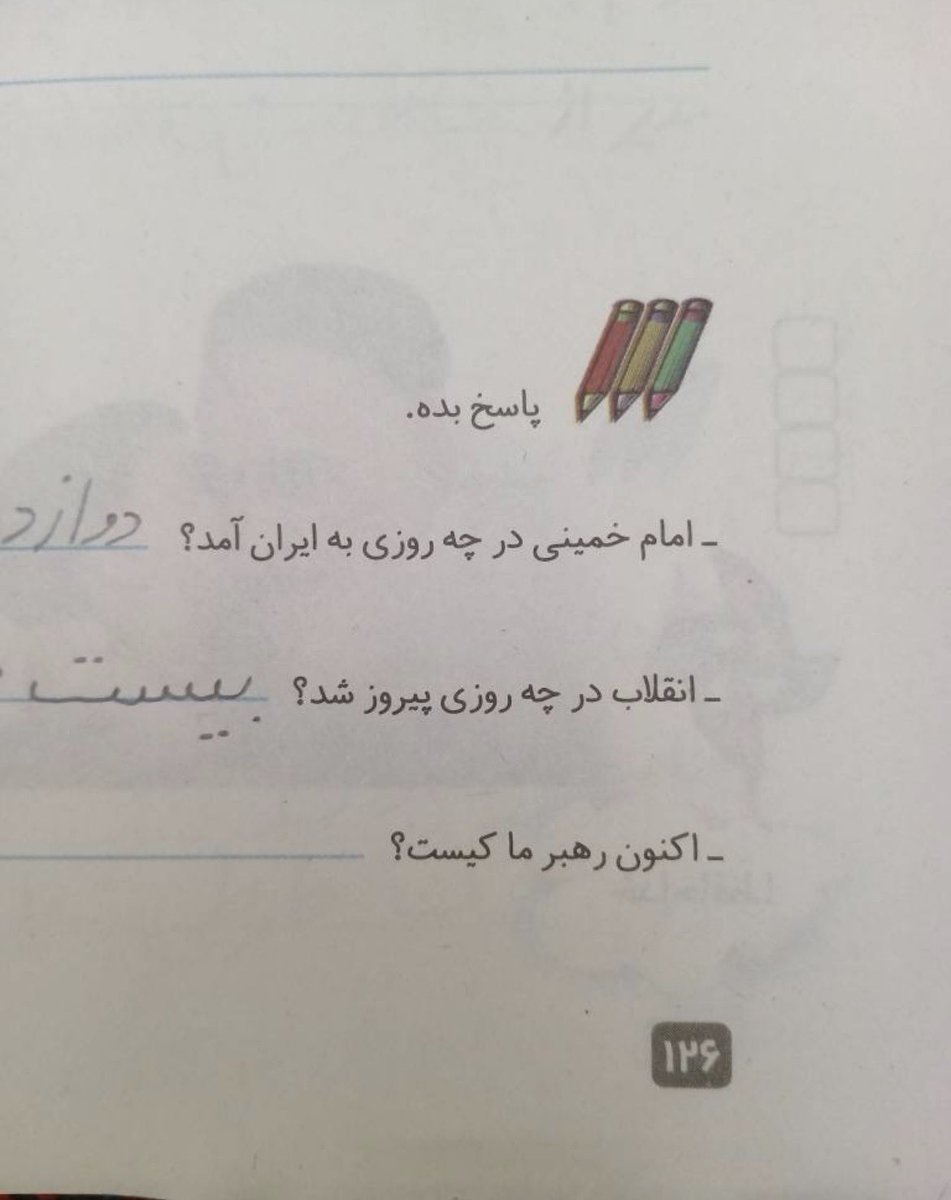 پاسخ بده.
ـ امام خمینی در چه روزی به ایران آمد؟ دوازد
ـ انقلاب در چه روزی پیروز شد؟ بیست
ـ اکنون رهبر ما کیست؟
۱۲۶